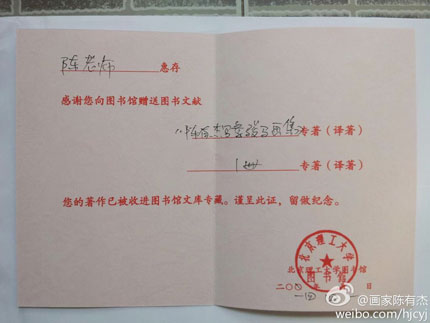 陈老师 惠存
感谢您向图书馆赠送图书文献
专著（译著）
1册 专著（译著）
您的著作已被收进图书馆文库专藏。谨呈此证，留做纪念。
北京理工大学
图书馆
北京理工大学图书馆
二〇〇 年 月 日
一四
@画家陈有杰
weibo.com/hjcyj